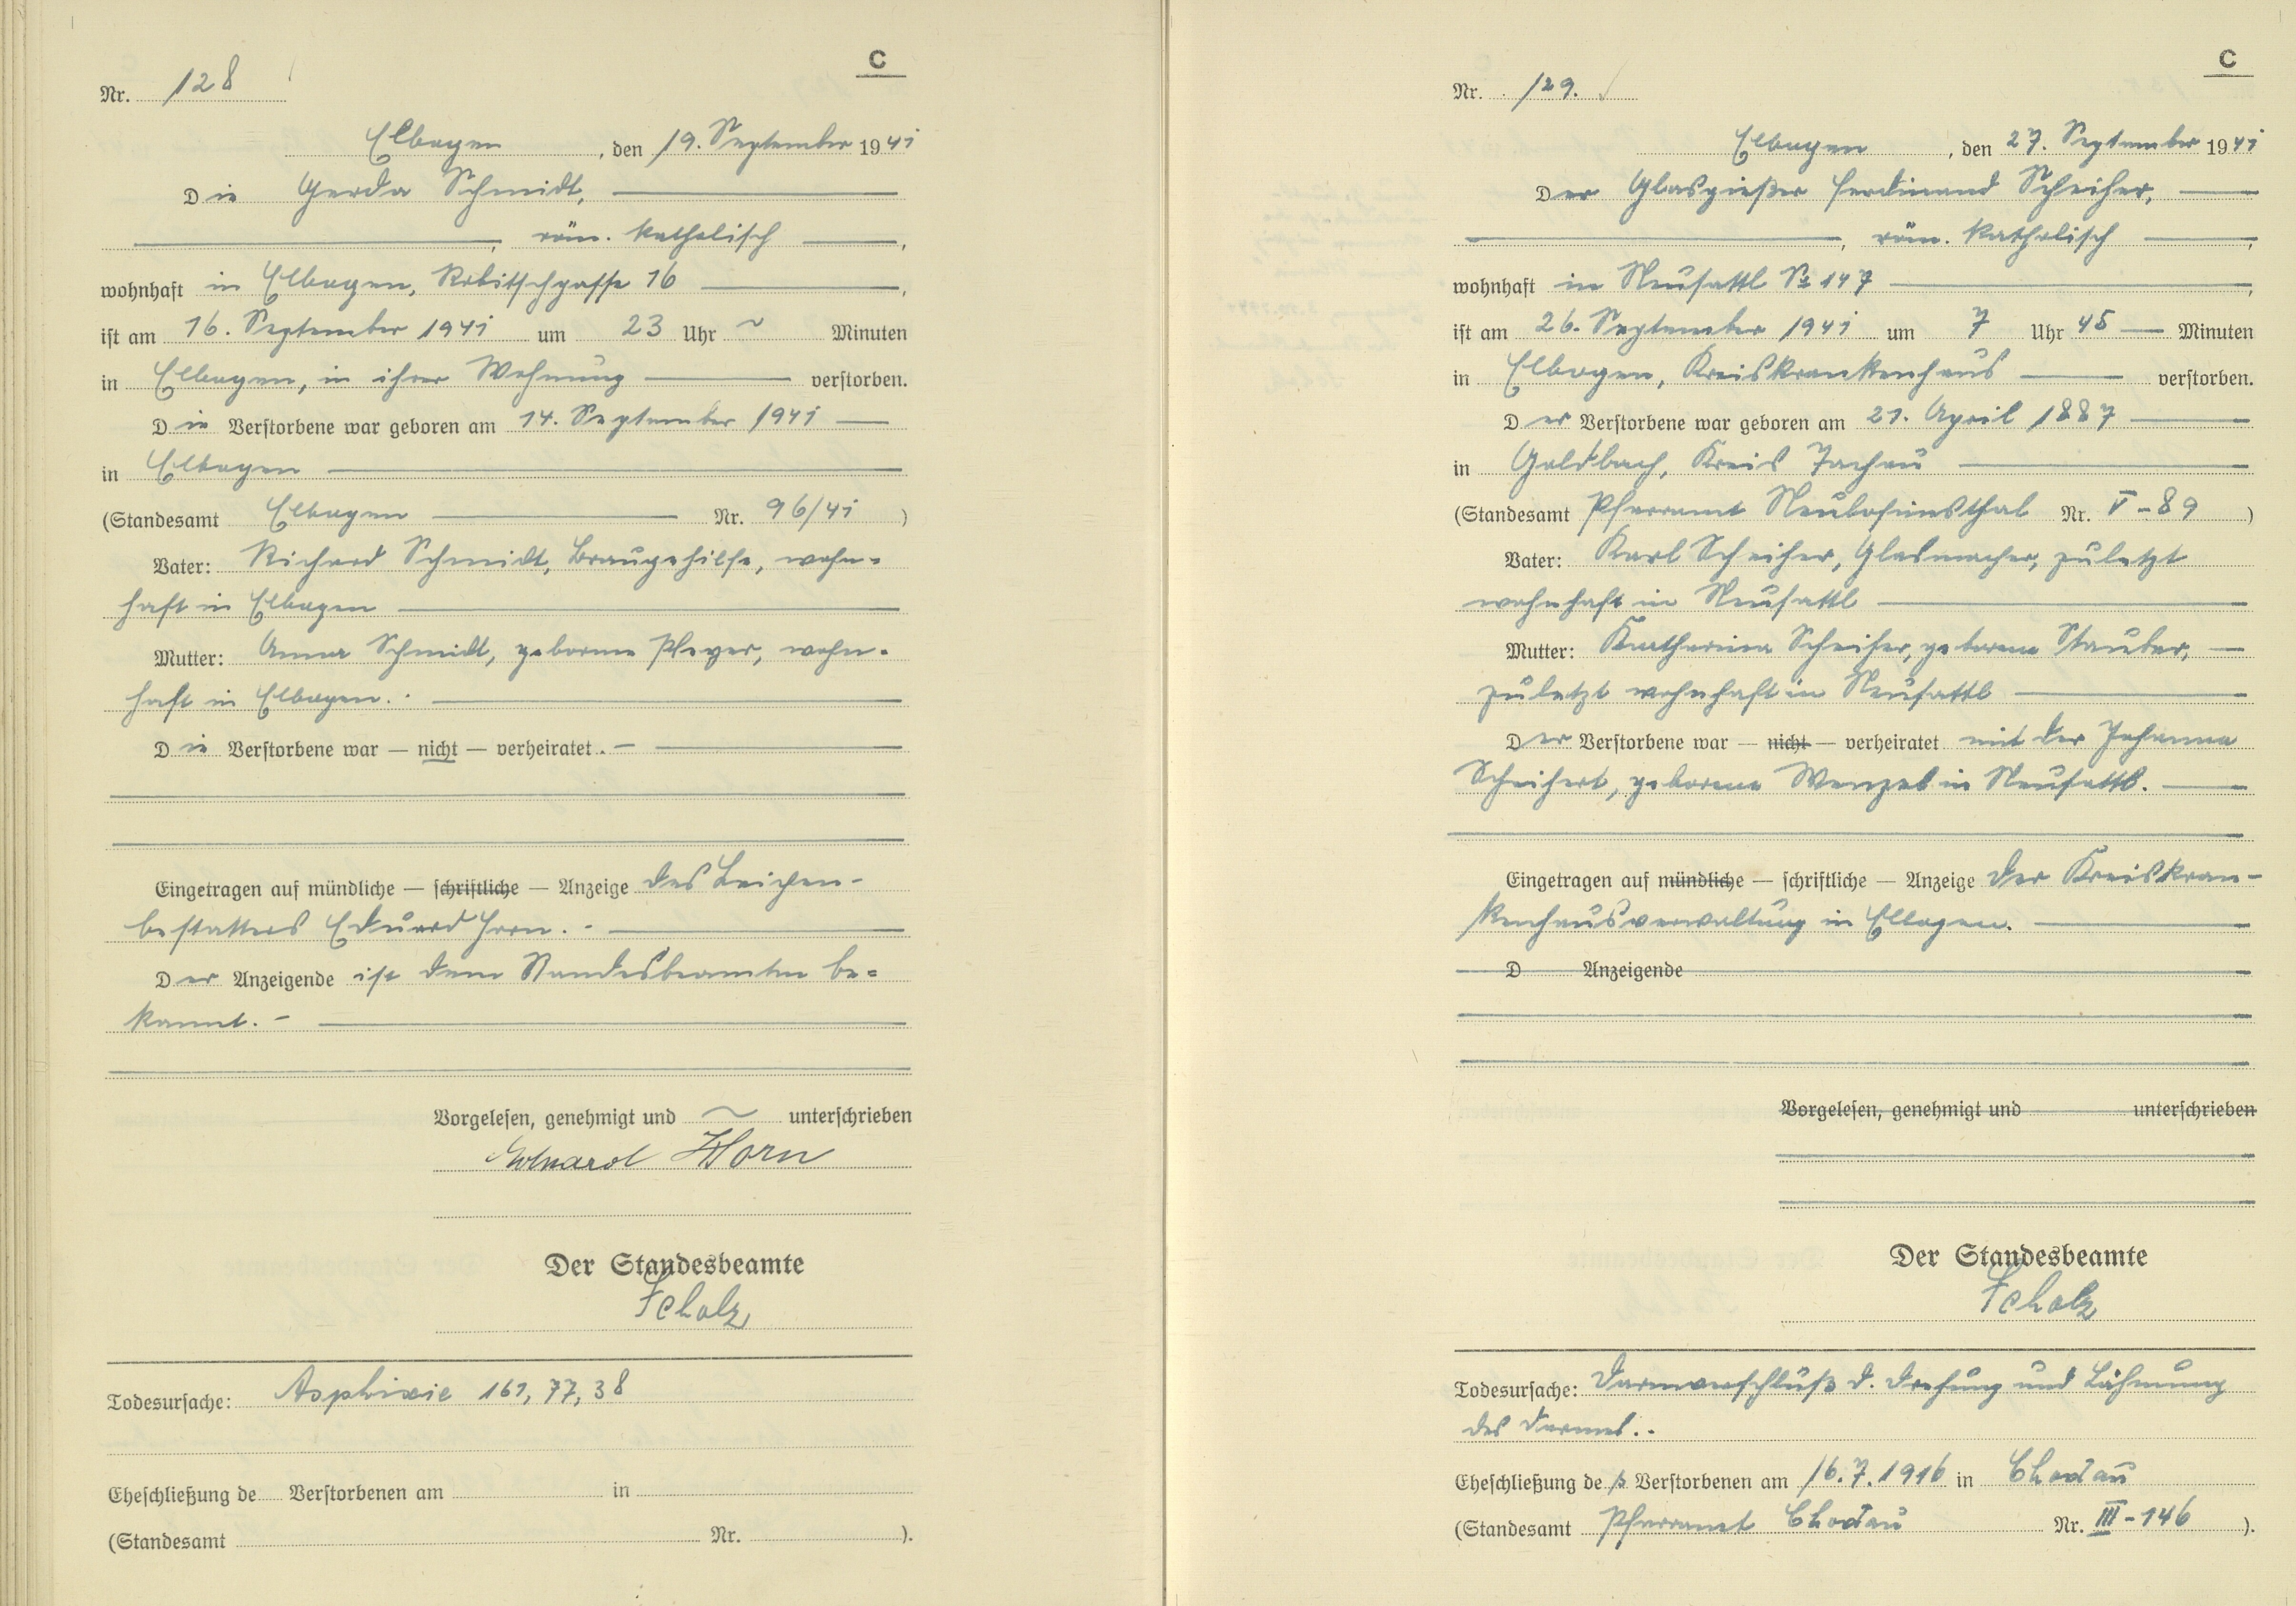 C
Nr. 128
Elbogen, den 19. September 1941
Die Gerda Schmidt,
, röm. katholisch,
wohnhaft in Elbogen, Robitschgasse 16,
ist am 16. September 1941 um 23 Uhr ~ Minuten
in Elbogen, in ihrer Wohnung verstorben.
Die Verstorbene war geboren am 14. September 1941
in Elbogen
(Standesamt Elbogen Nr. 96/41)
Vater: Richard Schmidt, Braugehilfe, wohn-
haft in Elbogen
Mutter: Anna Schmidt, geborene Pleyer, wohn-
haft in Elbogen.
Die Verstorbene war — nicht — verheiratet.
Eingetragen auf mündliche — schriftliche — Anzeige des Leichen-
bestatters Eduard Horn.
Der Anzeigende ist dem Standesbeamten be-
kannt.
Vorgelesen, genehmigt und ~ unterschrieben
Eduard Horn
Der Standesbeamte
Scholz
Todesursache: Asphixie 161, 77, 38
Eheschließung de Verstorbenen am in
(Standesamt Nr. ).
C
Nr. 129.
Elbogen, den 27. September 1941
Der Glasgießer Ferdinand Scheiher,
, röm. katholisch,
wohnhaft in Neusattl No 147,
ist am 26. September 1941 um 7 Uhr 45 Minuten
in Elbogen, Kreiskrankenhaus verstorben.
Der Verstorbene war geboren am 21. April 1887
in Goldbach, Kreis Tachau
(Standesamt Pfarramt Neulosimthal Nr. V-89)
Vater: Karl Scheiher, Glasmacher, zuletzt
wohnhaft in Neusattl
Mutter: Katharina Scheiher, geborene Stauber,
zuletzt wohnhaft in Neusattl
Der Verstorbene war — nicht — verheiratet mit der Johanna
Scheihert, geborene Wenzel in Neusattl.
Eingetragen auf mündliche — schriftliche — Anzeige der Kreiskran-
kenhausverwaltung in Elbogen.
D Anzeigende
Vorgelesen, genehmigt und unterschrieben
Der Standesbeamte
Scholz
Todesursache: Darmverschluß d. Drehung und Lähmung
des Darmes.
Eheschließung des Verstorbenen am 16.7.1916 in Chodau
(Standesamt Pfarramt Chodau Nr. III-146).